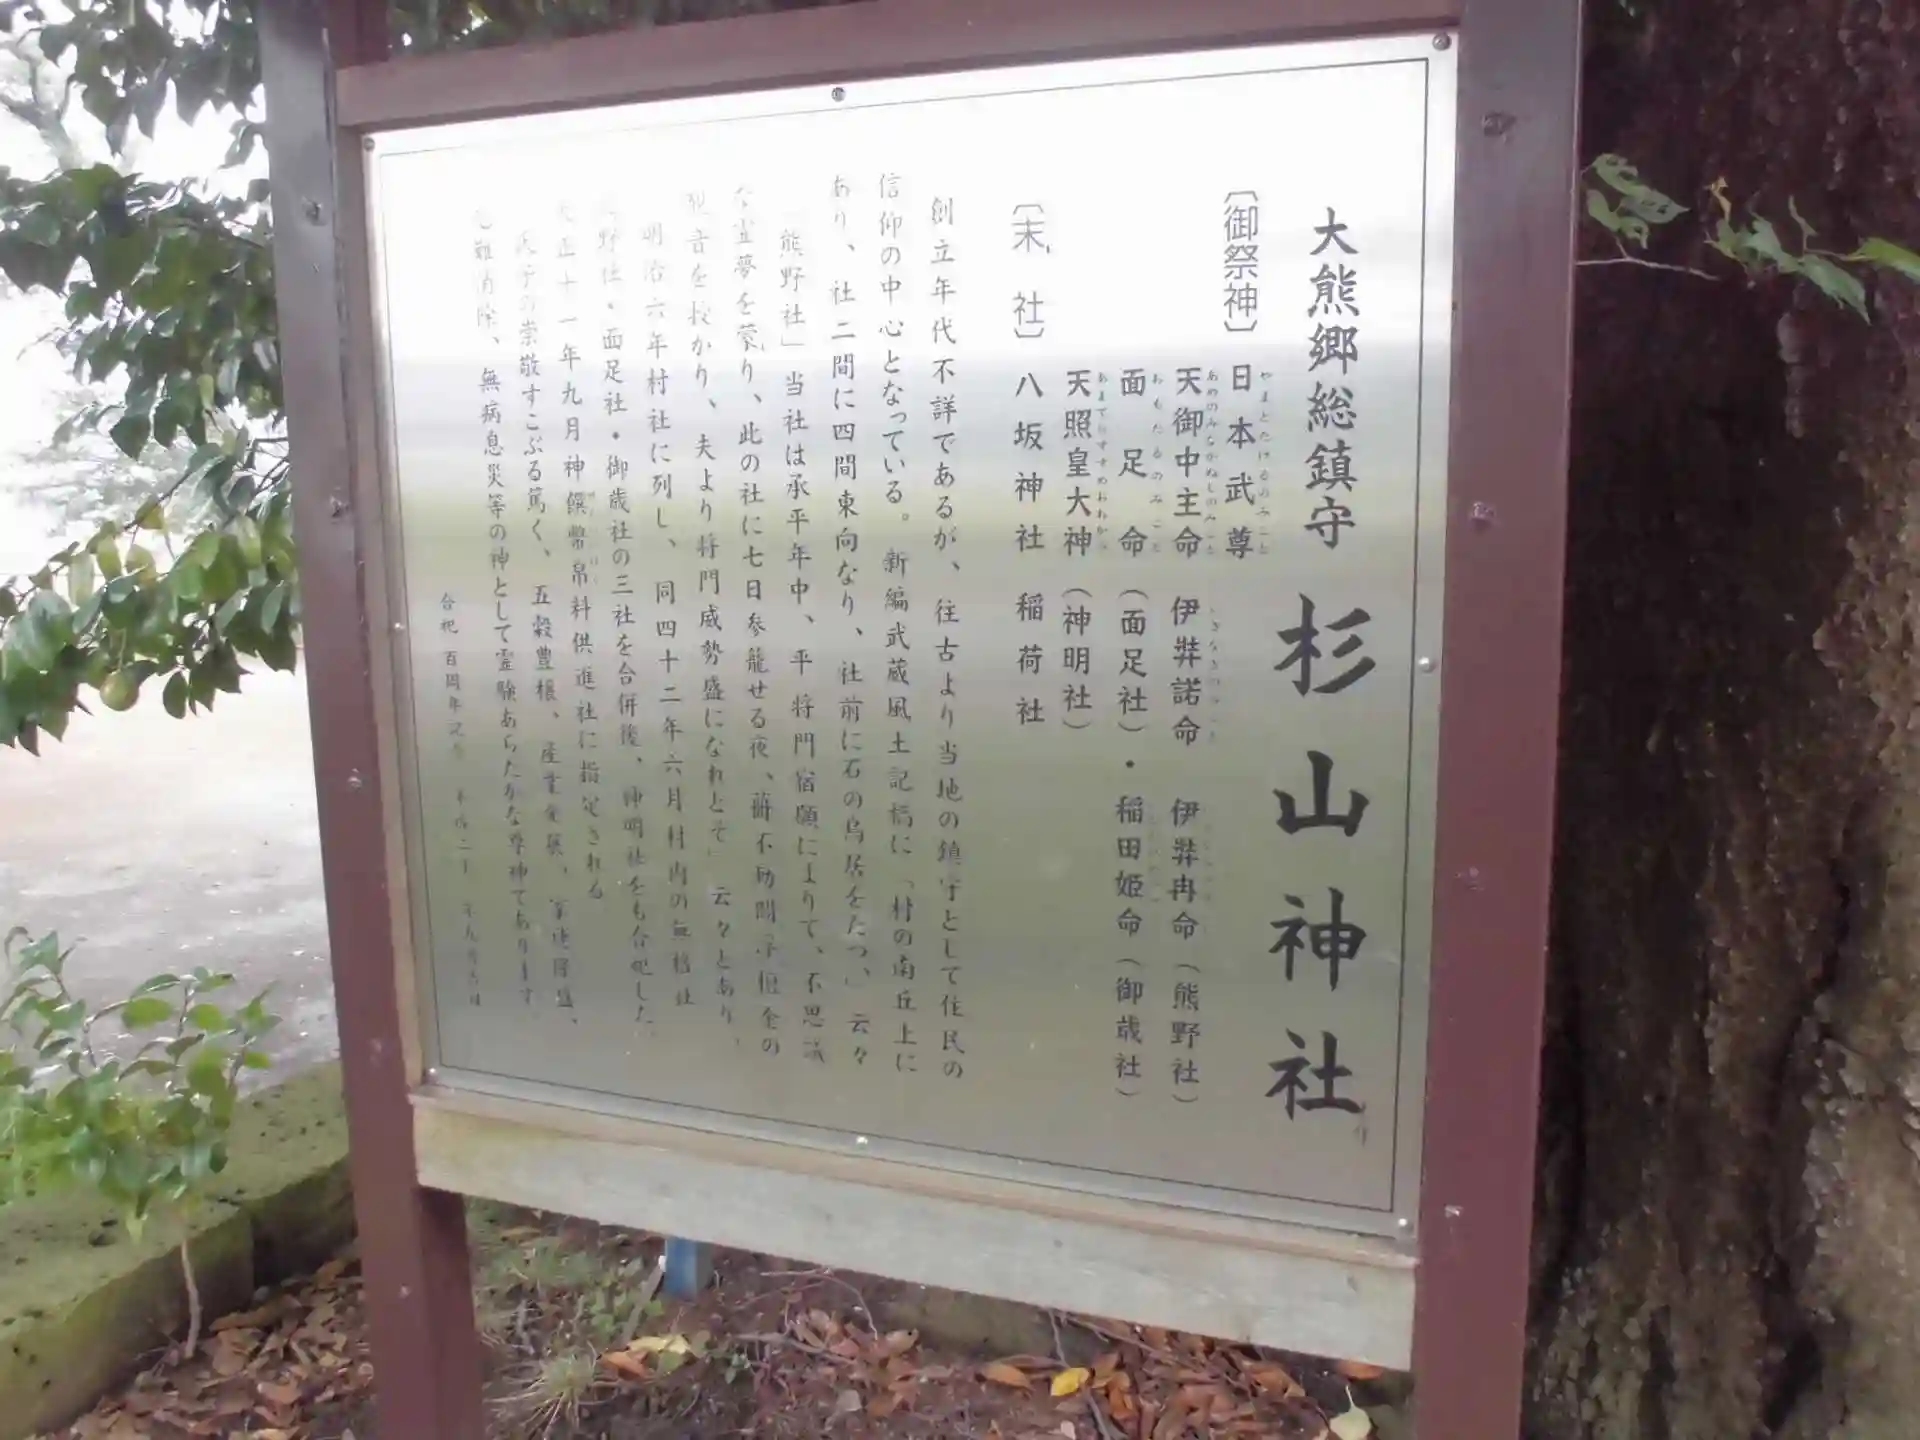 大熊郷総鎮守 杉山神社
〔御祭神〕 日本武尊
天御中主命 伊弉諾命 伊弉冉命（熊野社）
面足命（面足社）・稲田姫命（御歳社）
天照皇大神（神明社）
〔末社〕 八坂神社 稲荷社
創立年代不詳であるが、往古より当地の鎮守として住民の
信仰の中心となっている。新編武蔵風土記稿に「村の南丘上に
あり、社二間に四間東向なり、社前に石の鳥居をたつ、」云々
「熊野社」当社は承平年中、平将門宿願によりて、不思議
な霊夢を蒙り、此の社に七日参籠せる夜、
音を授かり、夫より将門威勢盛になれとそ」云々とあり、
明治六年村社に列し、同四十二年六月村内の無格社
熊野社・面足社・御歳社の三社を合併後、神明社をも合祀した。
大正十一年九月神饌幣帛料供進社に指定される
氏子の崇敬すこぶる篤く、五穀豊穣、産業発展、
難消除、無病息災等の神として霊験あらたかな尊神であります。
合祀百周年記念